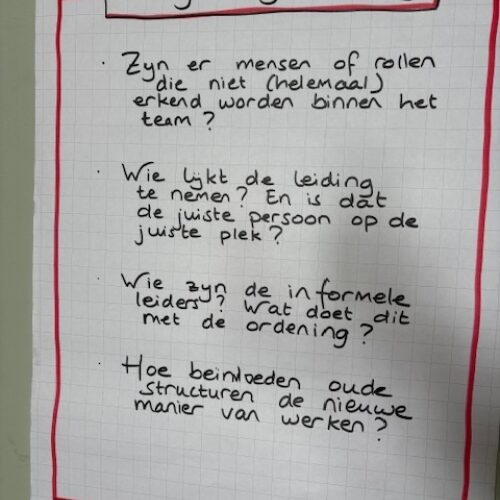 · Zijn er mensen of rollen
die niet (helemaal)
erkend worden binnen het
team?
· Wie lijkt de leiding
te nemen? En is dàt
de juiste persoon op de
juiste plek?
· Wie zijn de informele
leiders? Wat doet dit
met de ordening?
· Hoe beinvloeden oude
structuren de nieuwe
manier van werken?